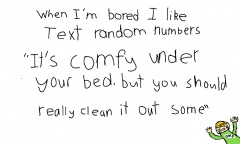 When I'm bored I like
Text random numbers
"It's comfy under
your bed. but you should
really clean it out some"